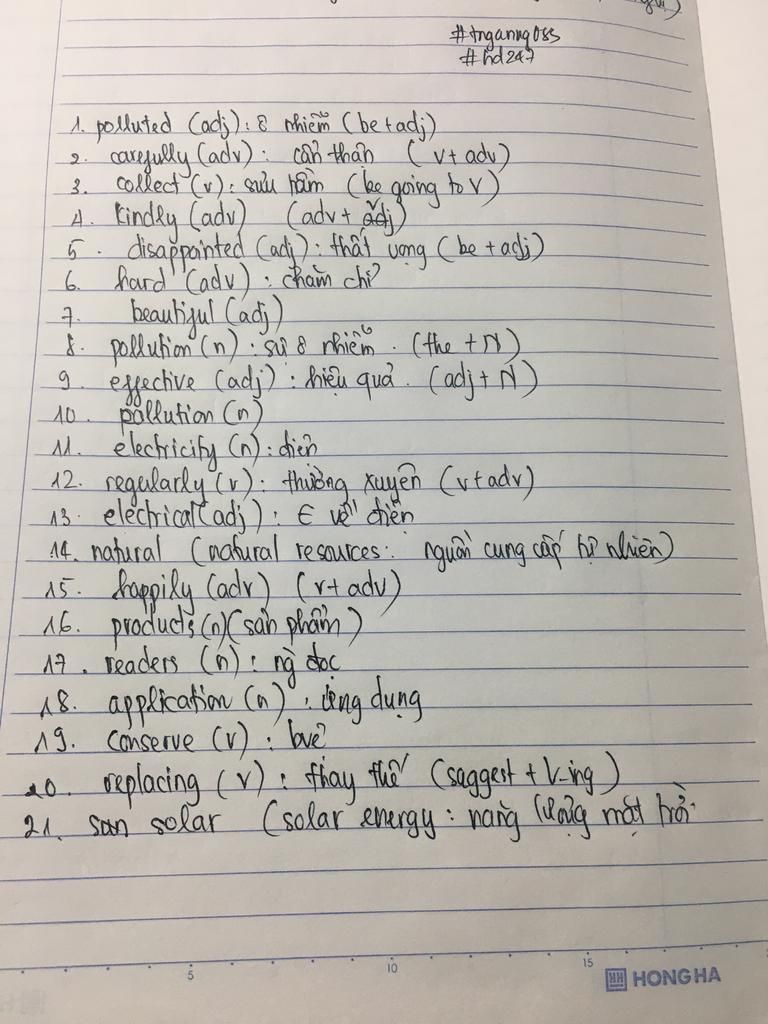 #tnganng085
#hd247
1. polluted (adj): ô nhiễm (be + adj)
2. carefully (adv): cẩn thận (v + adv)
3. collect (v): sưu tầm (be going to V)
4. kindly (adv) (adv + adj)
5. disappointed (adj): thất vọng (be + adj)
6. hard (adv): chăm chỉ
7. beautiful (adj)
8. pollution (n): sự ô nhiễm. (the + N)
9. effective (adj): hiệu quả. (adj + N)
10. pollution (n)
11. electricity (n): điện
12. regularly (v): thường xuyên (v + adv)
13. electrical (adj): € về điện
14. natural (natural resources: nguồn cung cấp tự nhiên)
15. happily (adv) (v + adv)
16. products (n) (sản phẩm)
17. readers (n): ng đọc
18. application (n): ứng dụng
19. conserve (v): bvệ
20. replacing (v): thay thế (saggest + V-ing)
21. solar (solar energy: năng lượng mặt trời
5 10 15
HONG HA